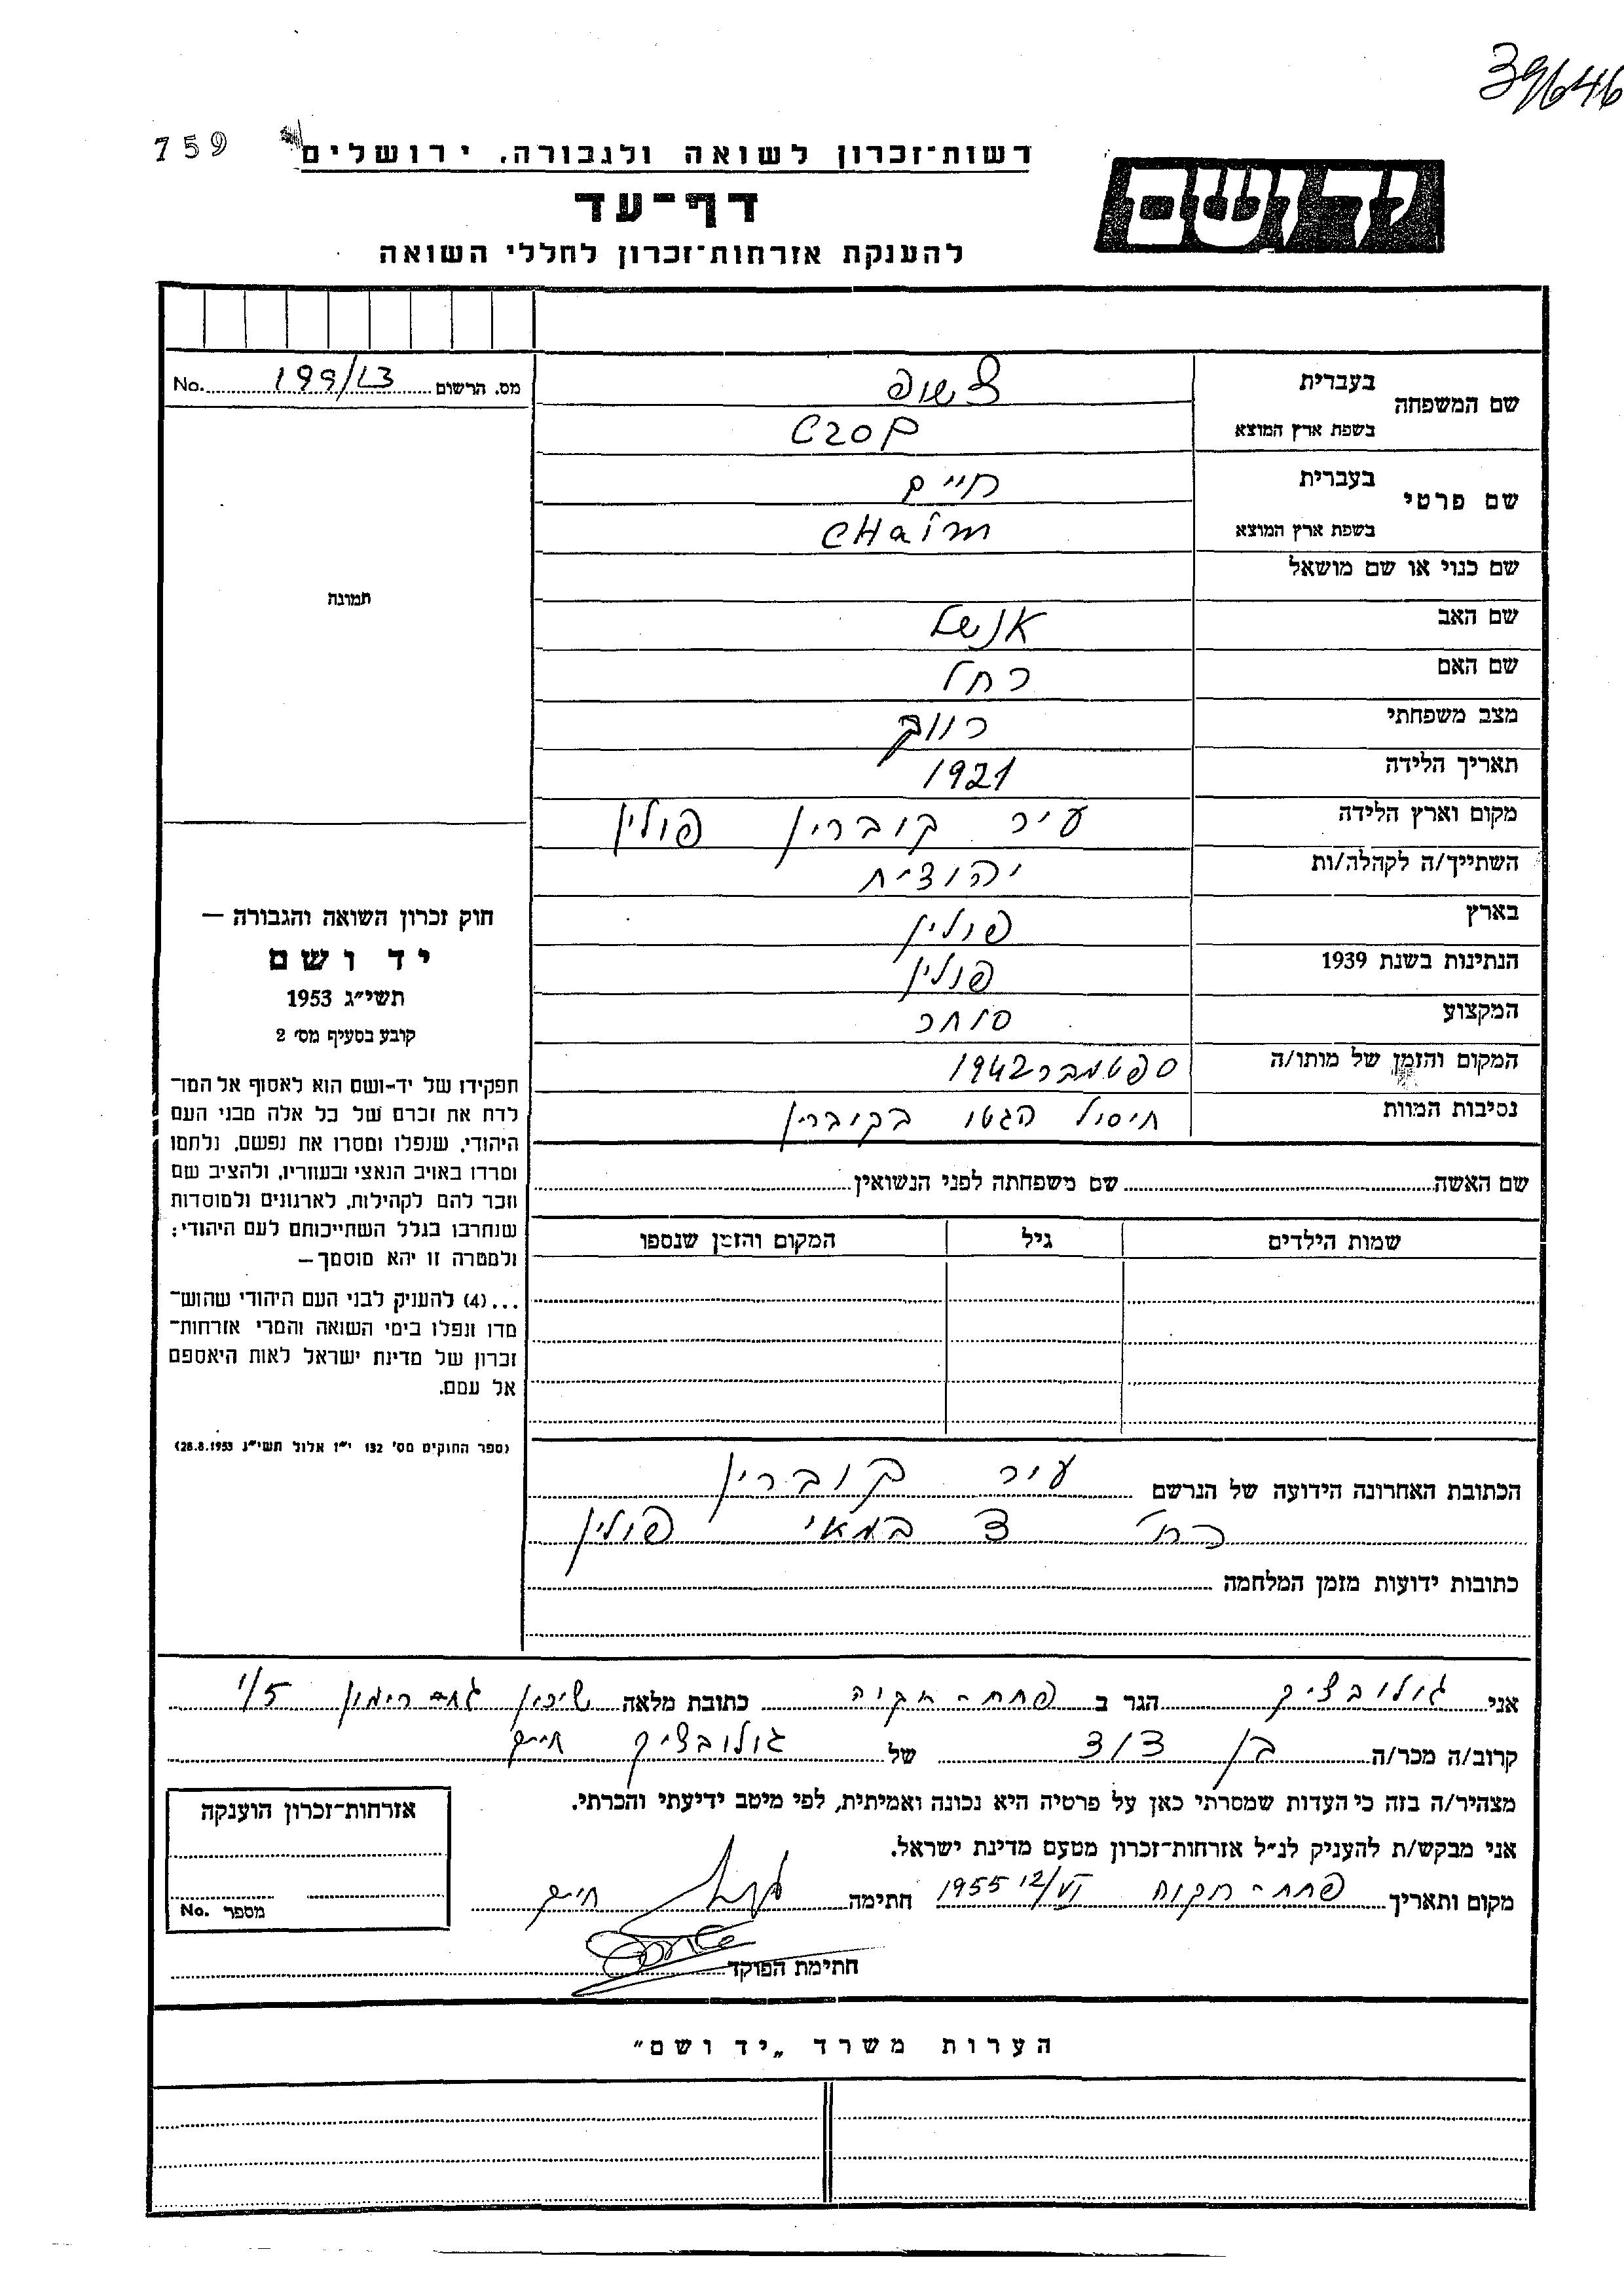 39646
759
רשות־זכרון לשואה ולגבורה, ירושלים
יד ושם
דף־עד
להענקת אזרחות־זכרון לחללי השואה
מס. הרשום 199/23 No.
שם המשפחה בעברית
בשפת ארץ המוצא CZOP
שם פרטי בעברית חיים
בשפת ארץ המוצא CHaim
שם כנוי או שם מושאל
תמונה
שם האב אנשל
שם האם רחל
מצב משפחתי רווק
תאריך הלידה 1921
מקום וארץ הלידה עיר קוברין פולין
השתייך/ה לקהלה/ות יהודית
בארץ פולין
הנתינות בשנת 1939 פולין
המקצוע סוחר
המקום והזמן של מותו/ה ספטמבר 1942
נסיבות המוות חיסול הגטו בקוברין
חוק זכרון השואה והגבורה —
יד ושם
תשי״ג 1953
קובע בסעיף מס׳ 2
תפקידו של יד-ושם הוא לאסוף אל המו־
לדת את זכרם של כל אלה מבני העם
היהודי, שנפלו ומסרו את נפשם, נלחמו
ומרדו באויב הנאצי ובעוזריו, ולהציב שם
וזכר להם לקהילות, לארגונים ולמוסדות
שנחרבו בגלל השתייכותם לעם היהודי;
ולמטרה זו יהא מוסמך—
...(4) להעניק לבני העם היהודי שהוש־
מדו ונפלו בימי השואה והמרי אזרחות־
זכרון של מדינת ישראל לאות היאספם
אל עמם.
(ספר החוקים מס׳ 132 י״ז אלול תשי״ג 28.8.1953)
שם האשה שם משפחתה לפני הנשואין
שמות הילדים גיל המקום והזמן שנספו
הכתובת האחרונה הידועה של הנרשם עיר קוברין
רח׳ 3 במאי פולין
כתובות ידועות מזמן המלחמה
אני גולובציק הגר ב פתח-תקוה כתובת מלאה שיכון גת רימון 1/5
קרוב/ה מכר/ה בן דוד של גולובציק חיים
מצהיר/ה בזה כי העדות שמסרתי כאן על פרטיה היא נכונה ואמיתית, לפי מיטב ידיעתי והכרתי.
אני מבקש/ת להעניק לנ״ל אזרחות־זכרון מטעם מדינת ישראל.
מקום ותאריך פתח-תקוה 12/VI 1955 חתימה חיים
חתימת הפוקד
אזרחות־זכרון הוענקה
מספר No.
הערות משרד „יד ושם״